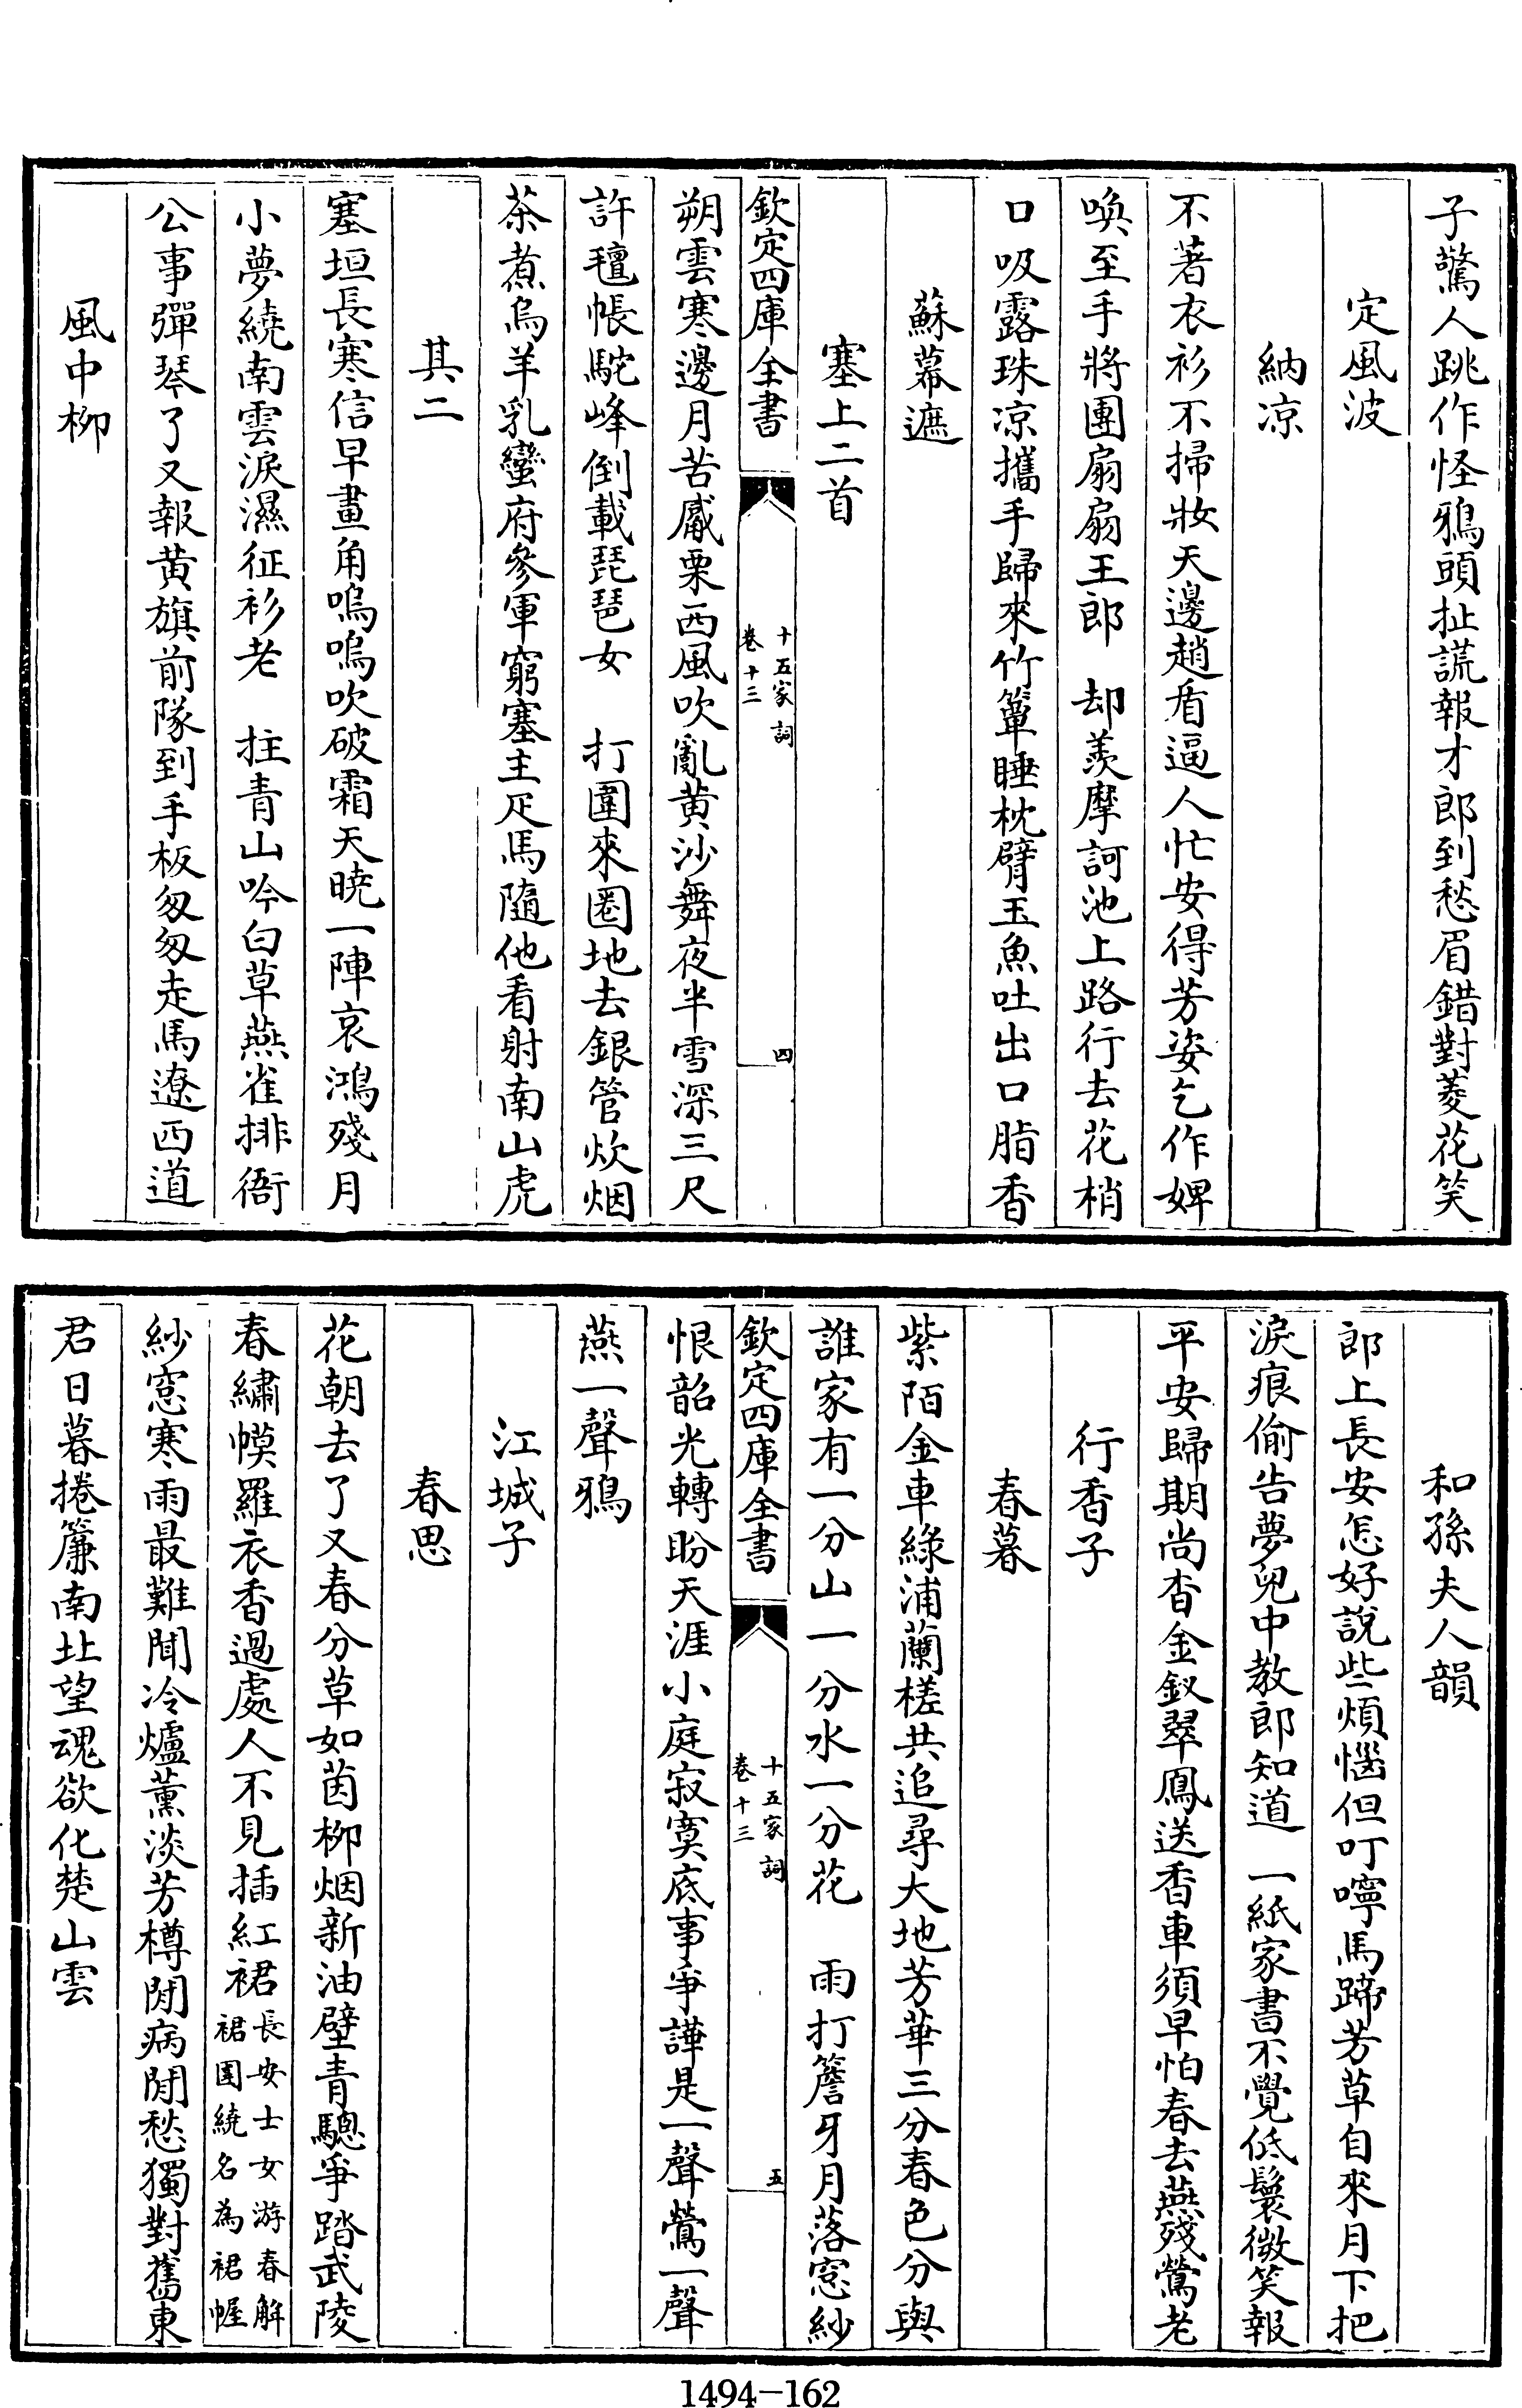 子驚人跳作怪鴉頭扯謊報才郎到愁眉錯對菱花笑
定風波
納凉
不著衣衫不掃妝天邊趙盾逼人忙安得芳姿乞作婢
喚至手將團扇扇王郎　却羨摩訶池上路行去花梢
口吸露珠凉攜手歸來竹簟睡枕臂玉魚吐出口脂香
蘇幕遮
塞上二首
欽定四庫全書
十五家詞
卷十三
四
朔雲寒邊月苦觱栗西風吹亂黄沙舞夜半雪深三尺
許氊帳駝峰倒載琵琶女　打圍來圈地去銀管炊烟
茶煮烏羊乳蠻府參軍窮塞主疋馬隨他看射南山虎
其二
塞垣長寒信早畫角嗚嗚吹破霜天曉一陣哀鴻殘月
小夢繞南雲淚濕征衫老　拄青山吟白草燕雀排衙
公事彈琴了又報黄旗前隊到手板匆匆走馬遼西道
風中柳
和孫夫人韻
郎上長安怎好說些煩惱但叮嚀馬蹄芳草自來月下把
淚痕偷告夢兒中教郎知道　一紙家書不覺低鬟微笑報
平安歸期尚杳金釵翠鳳送香車須早怕春去燕殘鶯老
行香子
春暮
紫陌金車綠浦蘭槎共追尋大地芳華三分春色分與
誰家有一分山一分水一分花　雨打簷牙月落窓紗
欽定四庫全書
十五家詞
卷十三
五
恨韶光轉盼天涯小庭寂寞底事爭譁是一聲鶯一聲
燕一聲鴉
江城子
春思
花朝去了又春分草如茵柳烟新油壁青驄爭踏武陵
春繡幙羅衣香過處人不見插紅裙長安士女游春解
裙圍繞名為裙幄
紗窓寒雨最難聞冷爐薰淡芳樽閒病閒愁獨對舊東
君日暮捲簾南北望魂欲化楚山雲
1494-162